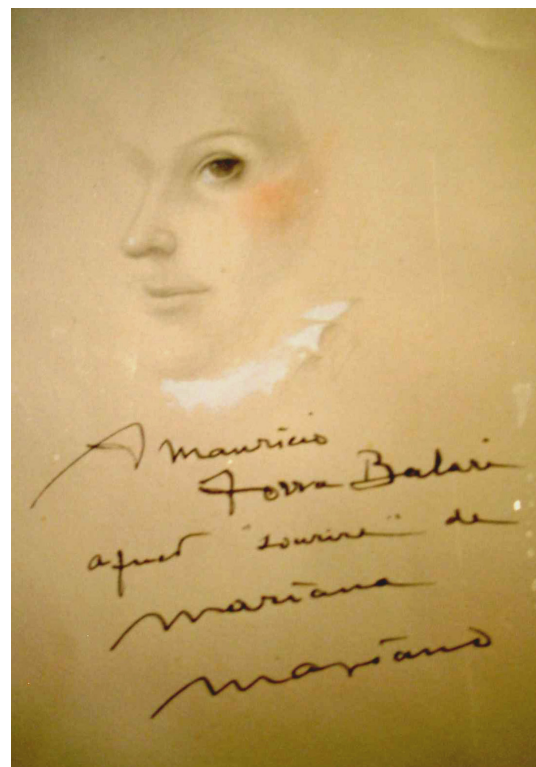 A Mauricio
Torra Balari
aquest "sourire" de
Mariana
Mariano